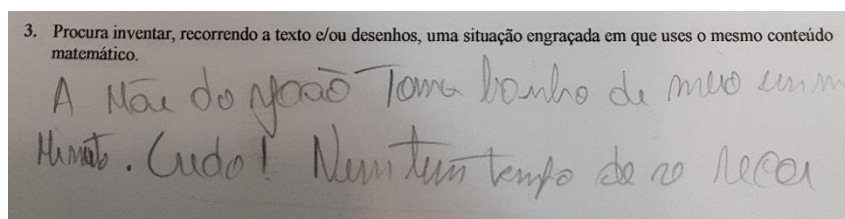 3. Procura inventar, recorrendo a texto e/ou desenhos, uma situação engraçada em que uses o mesmo conteúdo
matemático.
A Mãe do João Toma banho de meio
Minuto. Cudo! Nem tem tempo de